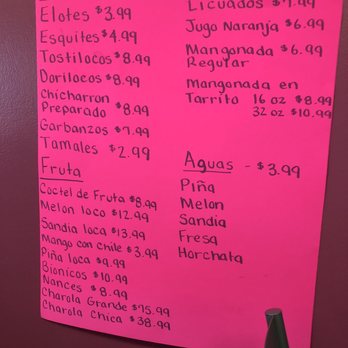 Elotes $3.99
Esquites $4.99
Tostilocos $8.99
Dorilocos $8.99
Chicharron
Preparado $8.99
Garbanzos $7.99
Tamales $2.99
Fruta
Coctel de Fruta $8.99
Melon loco $12.99
Sandia loca $13.99
Mango con chile $3.99
Piña loca $9.99
Bionicos $10.99
Nances $8.99
Charola Grande $75.99
Charola Chica $38.99
Licuados $7.99
Jugo Naranja $6.99
Mangonada $6.99
Regular
Mangonada en
Tarrito 16 oz $8.99
32 oz $10.99
Aguas - $3.99
Piña
Melon
Sandia
Fresa
Horchata